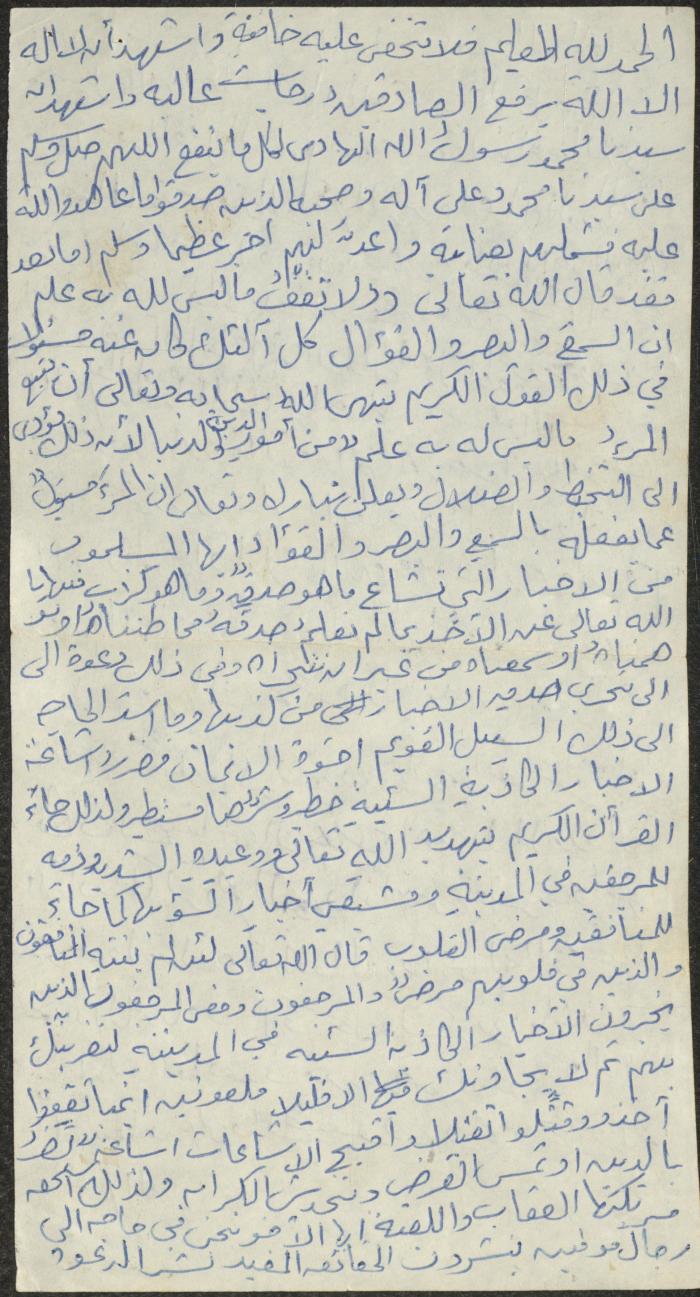 الحمد لله العليم فلا تخفى عليه خافية واشهد أن لا اله
الا الله يرفع الصادقين درجات عالية واشهد ان
سيدنا محمد رسول الله الهادى لكل ما ينفع اللهم صل وسلم
على سيدنا محمد وعلى آله وصحبه الذين صدقوا ما عاهدوا الله
عليه فشملهم بعنايته واعد لهم اجر عظيما وسلم اما بعد
فقد قال الله تعالى ولا تقف ما ليس لك به علم
ان السمع والبصر والفؤاد كل أولئك كان عنه مسئولا
في ذلك القول الكريم ينهى الله سبحانه وتعالى أن يتبع
المرء ما ليس له به علم من أمور الدين والدنيا لأن ذلك يؤدى
الى التخبط والضلال ويعلن تبارك وتعالى ان المرء مسئول
عما يفعله بالسمع والبصر والفؤاد ايها المسلمون
من الاخبار التي تشاع ما هو صدق وما هو كذب فنهانا
الله تعالى عن الآخذ بما لم نعلم صدقه مما ظنناه او
او سمعناه من غير ان وفي ذلك دعوة الى
الى تحرى صدق الاخبار من كذبها وما اشد الحاجه
الى ذلك السبيل القويم اخوة الايمان ضرر اشاعة
الاخبار الكاذبة السيئة خطير وشرها مستطير ولذلك جاء
القرآن الكريم بتهديد الله تعالى ووعيده الشديد وذمه
للمرجفين في المدينة ومشيعي أخبار السوء بها كما جاء
للمنافقين ومرضى القلوب قال الله تعالى لئن لم ينته المنافقون
والذين في قلوبهم مرض والمرجفون ومعنى المرجفون الذين
يخبرون الأخبار الكاذبة السيئه في المدينة لنغرينك
بهم ثم لا يجاورونك فيها الا قليلا ملعونين اينما ثقفوا
أخذوا وقتلوا تقتيلا وأقبح الاشاعات اشاعة تضر
بالدين او تمس العرض وتخدش الكرامه ولذلك استحق
مرتكبها العقاب واللعنة ايها الأخوة نحن في حاجه الى
رجال موفقين ينشرون الحقائق المفيد نشر الدعوة